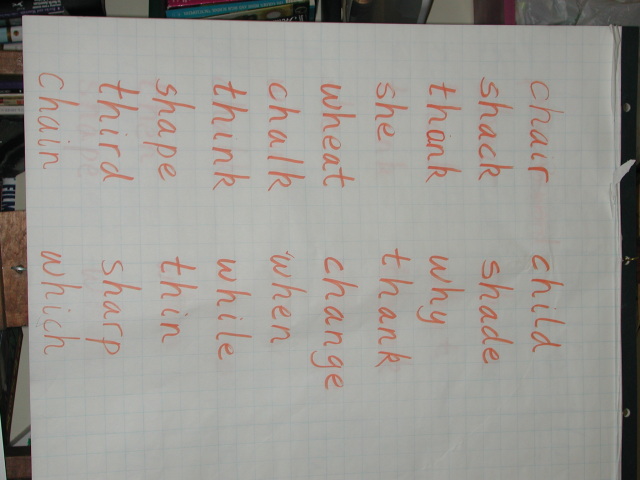 chair child
shack shade
thank why
she thank
wheat change
chalk when
think while
shape thin
third sharp
chain which